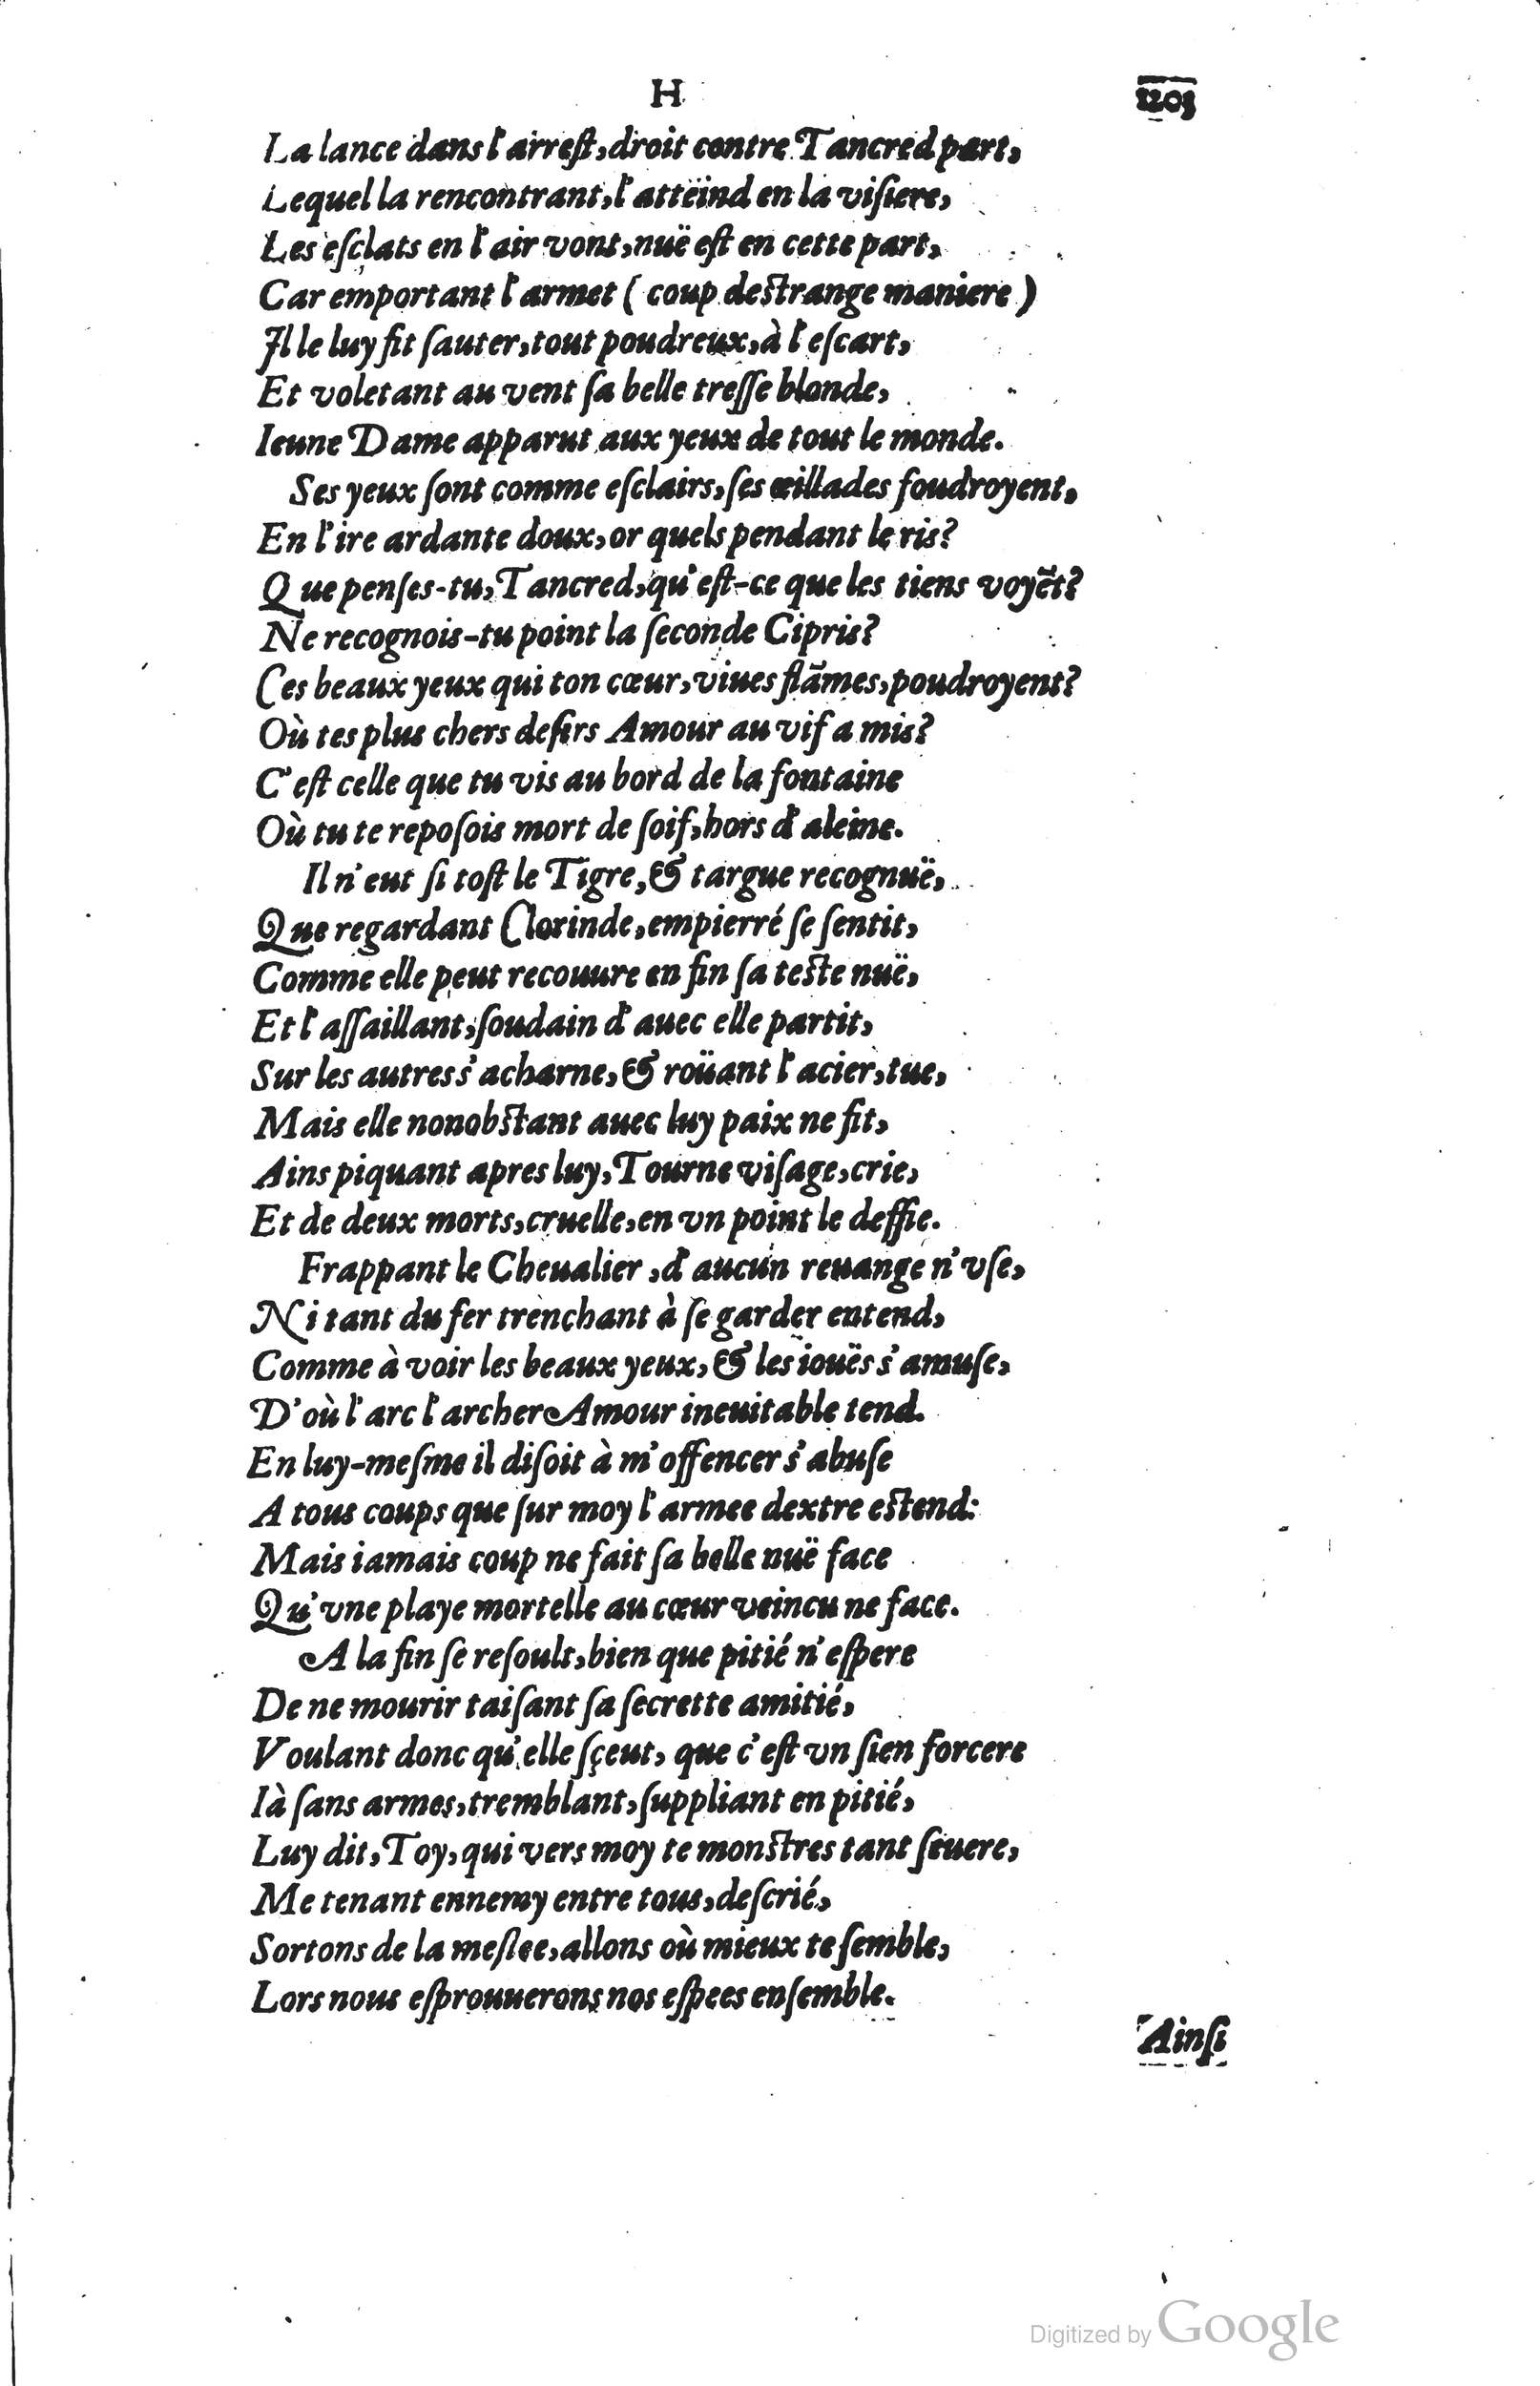 H 1205
La lance dans l'arreſt, droit contre Tancred part,
Lequel la rencontrant, l'atteind en la viſiere,
Les eſclats en l'air vont, nuë eſt en cette part,
Car emportant l'armet ( coup deſtrange maniere )
Il le luy fit ſauter, tout poudreux, à l'eſcart,
Et voletant au vent ſa belle treſſe blonde,
Ieune Dame apparut aux yeux de tout le monde.
Ses yeux ſont comme eſclairs, ſes œillades foudroyent,
En l'ire ardante doux, or quels pendant le ris?
Que penſes-tu, Tancred, qu'eſt-ce que les tiens voyẽt?
Ne recognois-tu point la ſeconde Cipris?
Ces beaux yeux qui ton cœur, viues flãmes, poudroyent?
Où tes plus chers deſirs Amour au vif a mis?
C'eſt celle que tu vis au bord de la fontaine
Où tu te repoſois mort de ſoif, hors d'aleine.
Il n'eut ſi toſt le Tigre, & targue recognuë,
Que regardant Clorinde, empierré ſe ſentit,
Comme elle peut recouure en fin ſa teſte nuë,
Et l'aſſaillant, ſoudain d'auec elle partit,
Sur les autres s'acharne, & roüant l'acier, tue,
Mais elle nonobſtant auec luy paix ne fit,
Ains piquant apres luy, Tourne viſage, crie,
Et de deux morts, cruelle, en vn point le deffie.
Frappant le Cheualier, d'aucun reuange n'vſe,
Ni tant du fer trenchant à ſe garder entend,
Comme à voir les beaux yeux, & les iouës s'amuſe,
D'où l'arc l'archer Amour ineuitable tend.
En luy-meſme il diſoit à m'offencer s'abuſe
A tous coups que ſur moy l'armee dextre eſtend:
Mais iamais coup ne fait ſa belle nuë face
Qu'vne playe mortelle au cœur veincu ne face.
A la fin ſe reſoult, bien que pitié n'eſpere
De ne mourir taiſant ſa ſecrette amitié,
Voulant donc qu'elle ſçeut, que c'eſt vn ſien forcere
Ià ſans armes, tremblant, ſuppliant en pitié,
Luy dit, Toy, qui vers moy te monſtres tant ſeuere,
Me tenant ennemy entre tous, deſcrié,
Sortons de la meſlee, allons où mieux te ſemble,
Lors nous eſprouuerons nos eſpees enſemble.
Ainſi
Digitized by Google